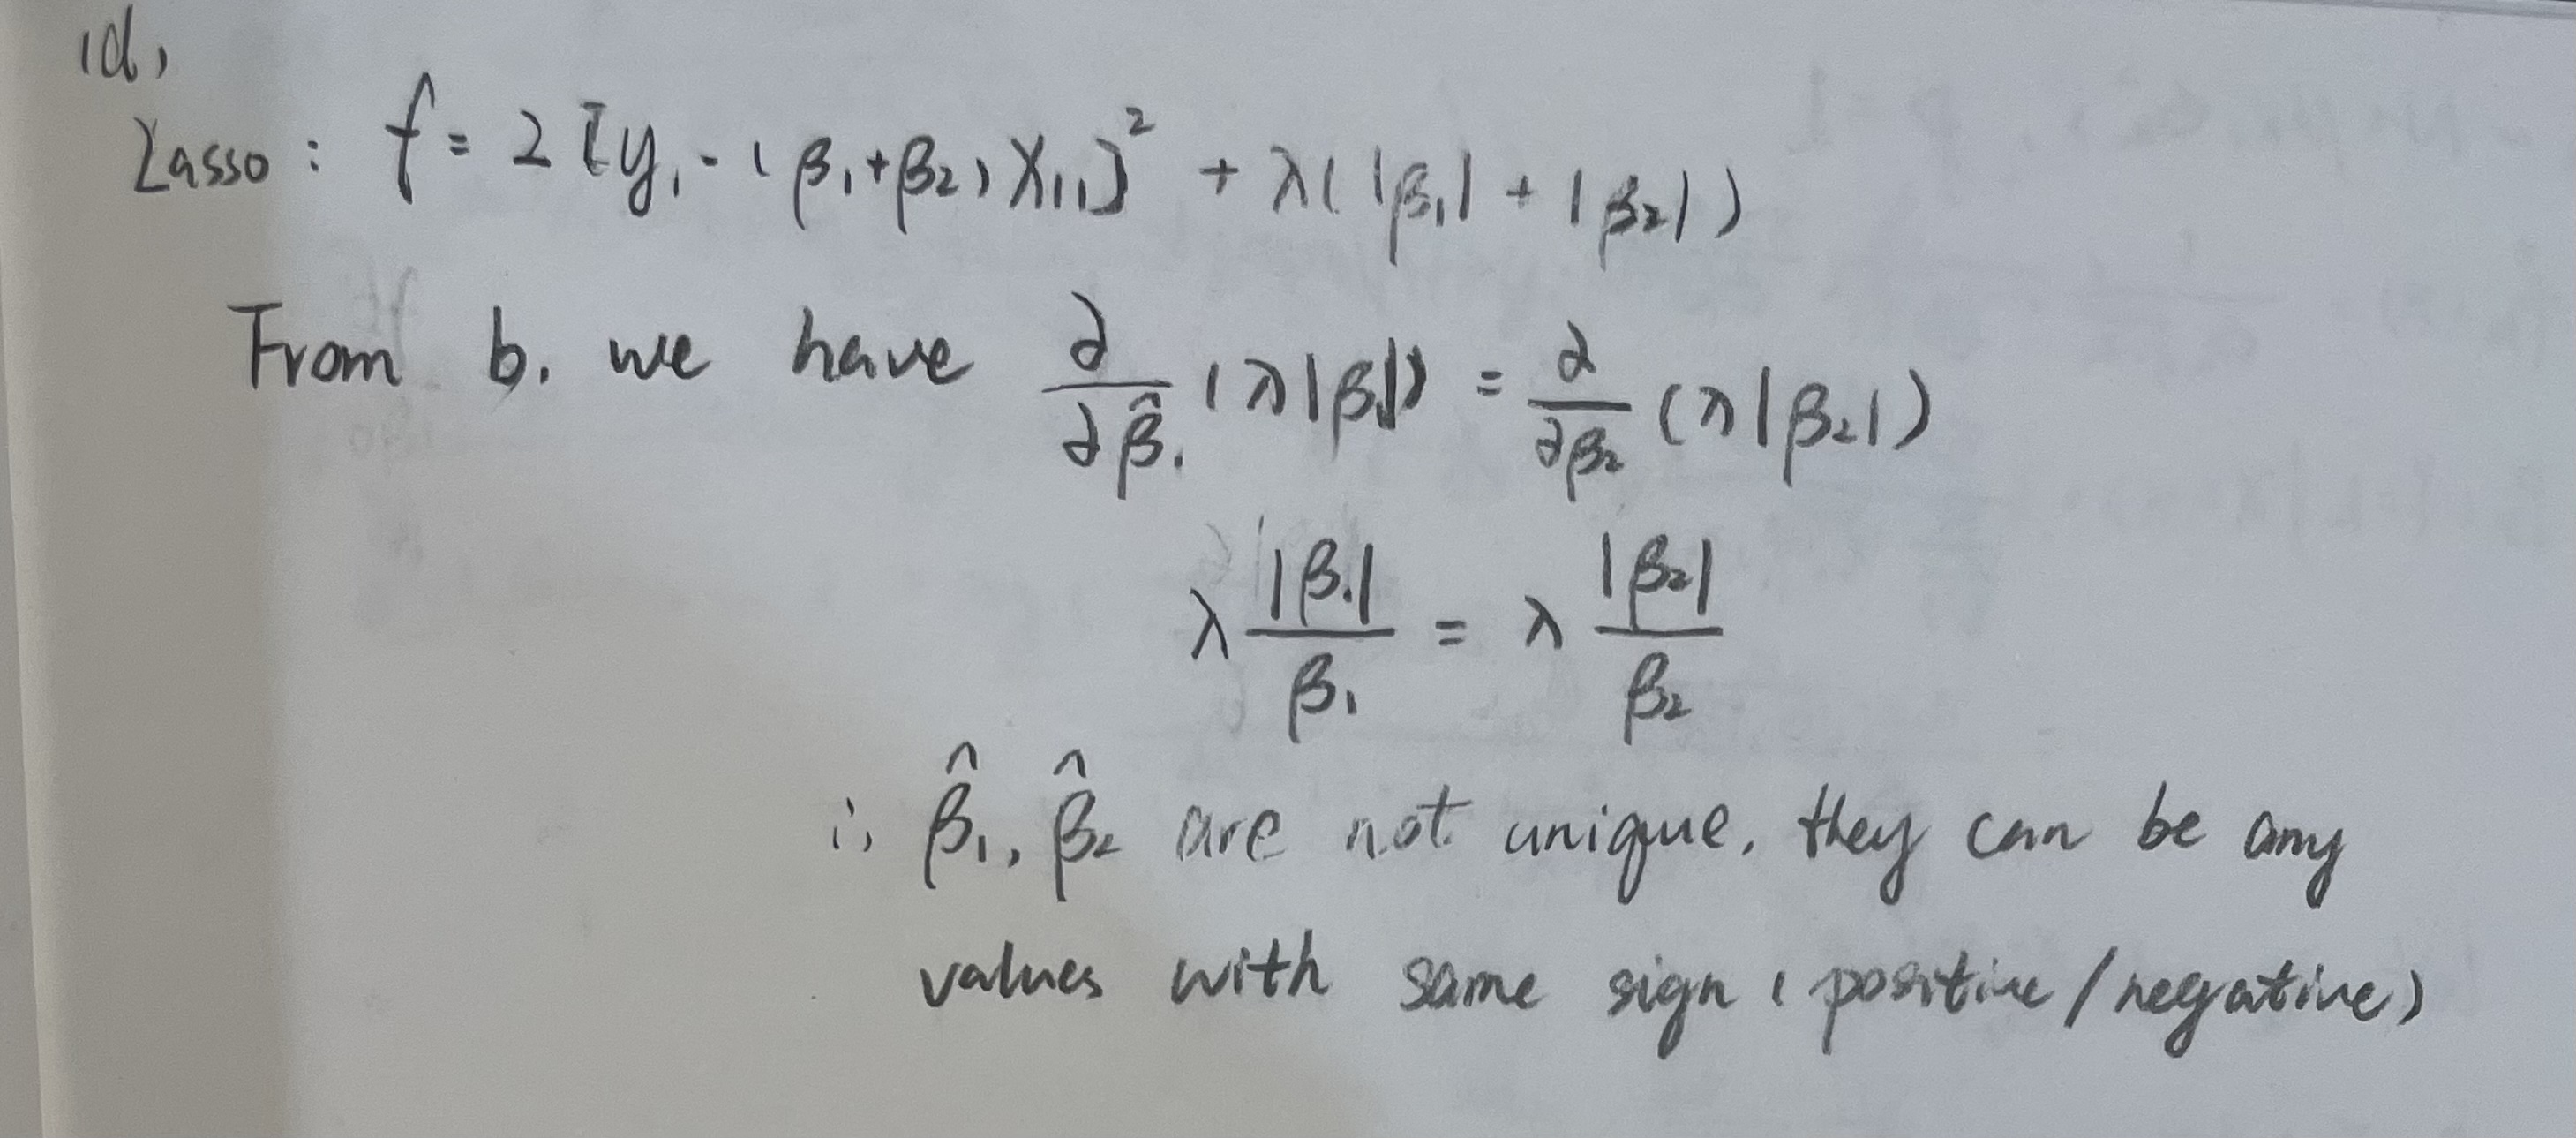 (d)
Lasso: f = 2 [y₁ - (β₁+β₂) X₁₁]² + λ(|β₁| + |β₂|)
From b. we have ∂/∂β̂₁ (λ|β₁|) = ∂/∂β₂ (λ|β₂|)
λ |β₁|/β₁ = λ |β₂|/β₂
∴ β̂₁, β̂₂ are not unique. they can be any
values with same sign (positive/negative)